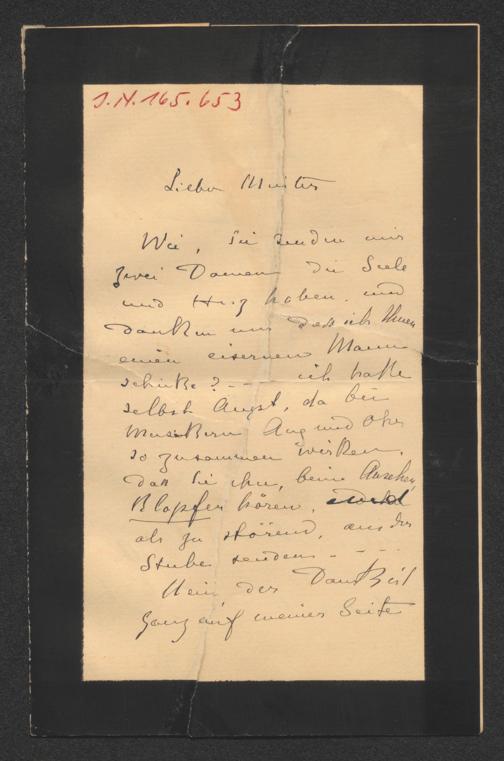 J.N. 165.653
Lieber Meister
Wie, Sie senden mir
zwei Damen die Seele
und Herz haben, und
danken mir dass ich Ihnen
einen eisernen Mann
schicke? - - ich hatte
selbst Angst, da bei
Musikern Aug und Ohr
so zusammen wirken,
daß Sie ihn, beim Ansehen
klopfen hören,
als zu störend, aus der
Stube senden - - - -
Nein der Dank ist
ganz auf meiner Seite